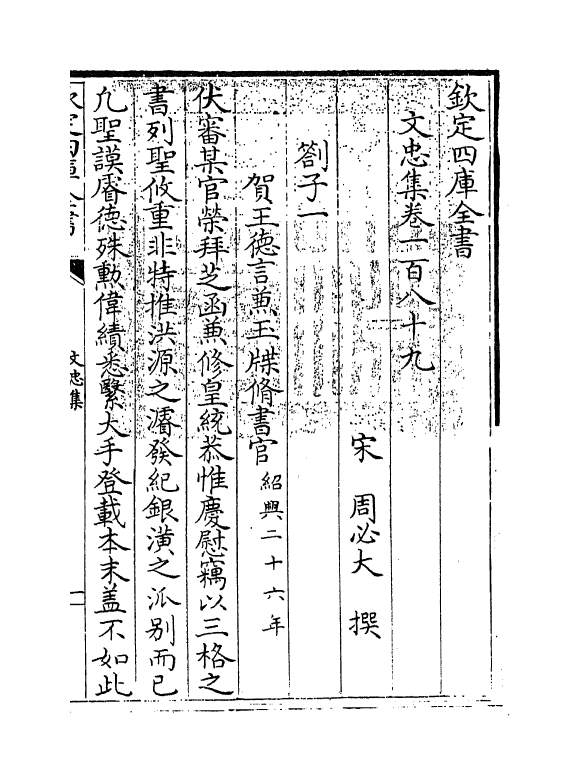 欽定四庫全書
文忠集卷一百八十九
宋 周必大 撰
劄子一
賀王徳言兼玉牒脩書官 紹興二十六年
伏審某官榮拜芝函兼修皇統恭惟慶慰竊以三格之
書列聖攸重非特推洪源之濬發紀銀潢之派别而已
凢聖謨睿徳殊勲偉績悉繫大手登載本末盖不如此
欽定四庫全書
文忠集
一